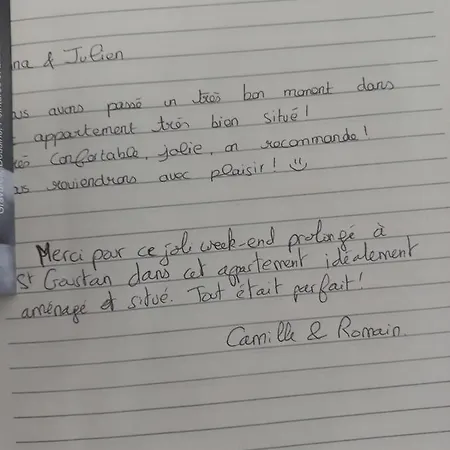 na & Julien
us avons passé un très bon moment dans
appartement très bien situé!
ès confortable, jolie, on recommande!
us reviendrons avec plaisir!
Merci par ce joli week-end prolongé à
St Goustan dans cet appartement idéalement
aménagé et situé. Tout était parfait!
Camille & Romain.